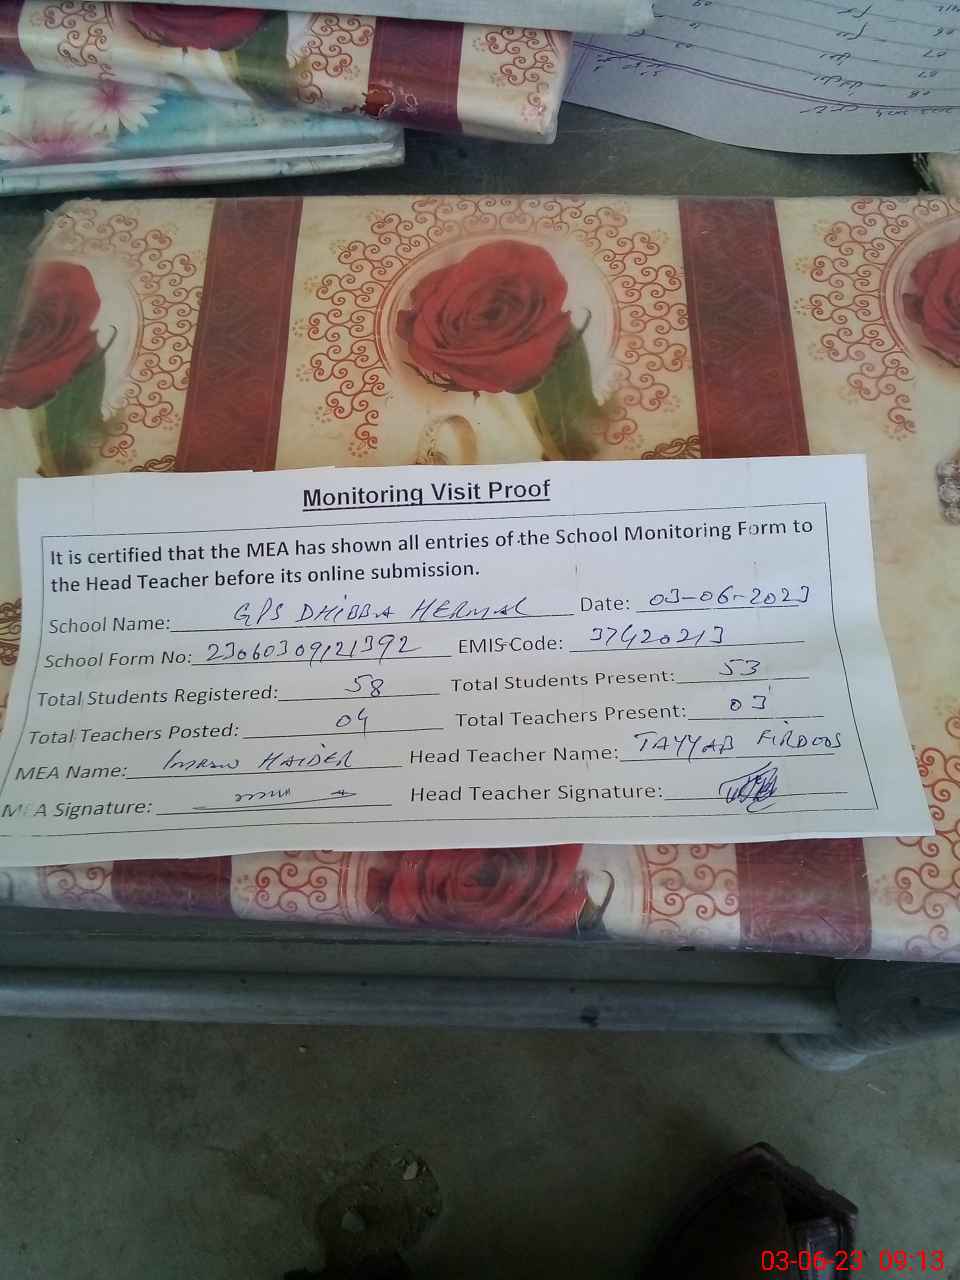 Monitoring Visit Proof
It is certified that the MEA has shown all entries of the School Monitoring Form to
the Head Teacher before its online submission.
School Name: GPS DHIBBA HERMAL Date: 03-06-2023
School Form No: 23060309121392 EMIS Code: 37420213
Total Students Registered: 58 Total Students Present: 53
Total Teachers Posted: 04 Total Teachers Present: 03
MEA Name: Imran HAIDER Head Teacher Name: TAYYAB FIRDOOS
MEA Signature: Head Teacher Signature:
03-06-23 09:13